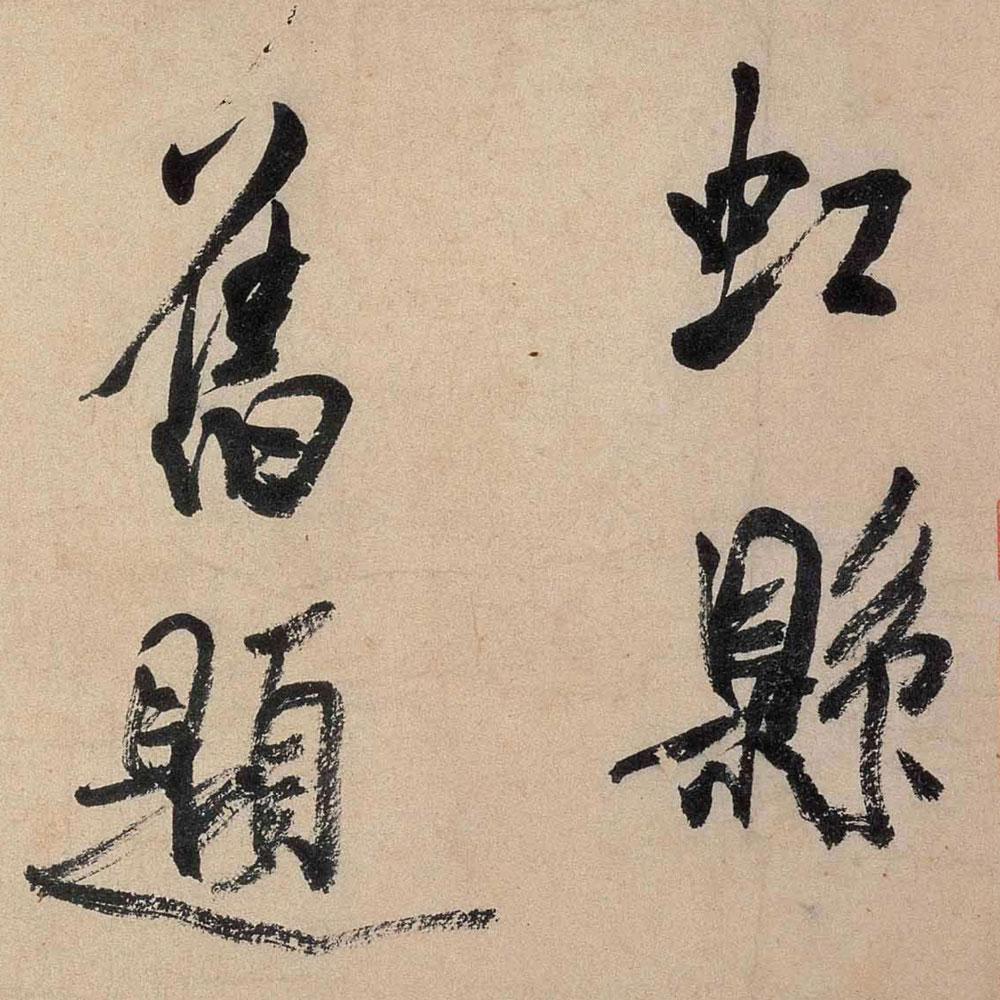 虹縣
舊題